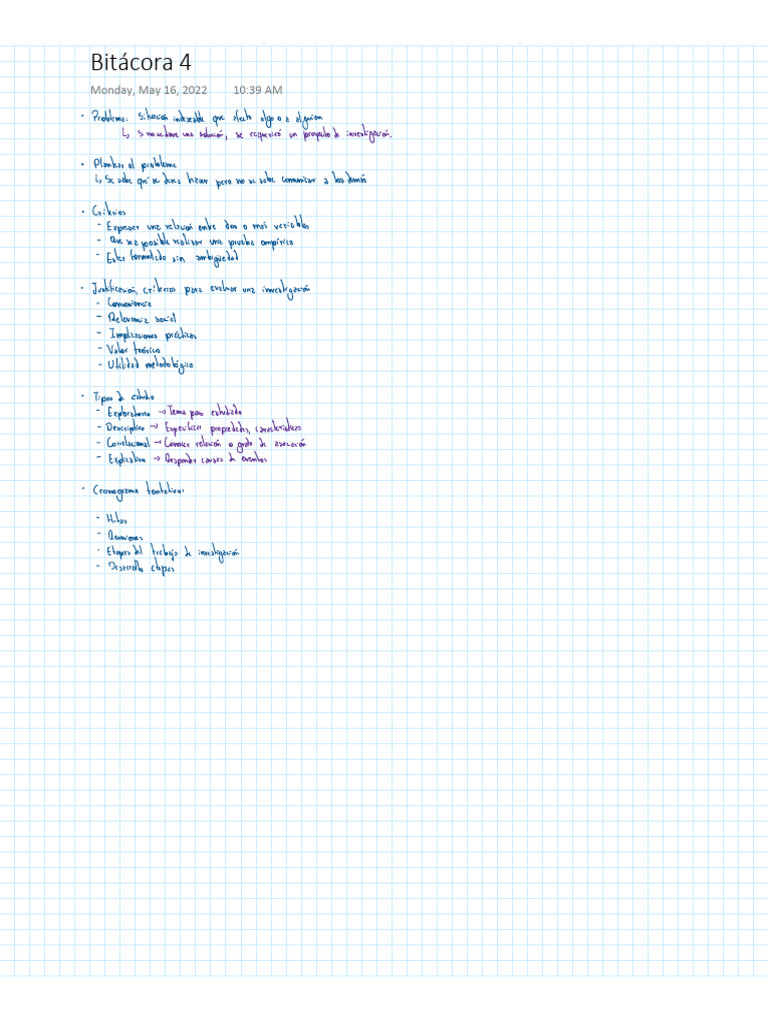 Bitácora 4
Monday, May 16, 2022 10:39 AM
· Problema: Situación indeseable que afecta algo o a alguien
↳ Si no se tiene una solución, se requerirá un proyecto de investigación.
· Plantear el problema
↳ Se sabe qué se desea hacer pero no se sabe comunicar a los demás
· Criterios
- Expresar una relación entre dos o más variables
- Que sea posible realizar una prueba empírica
- Estar formulado sin ambigüedad
· Justificación, criterios para evaluar una investigación
- Conveniencia
- Relevancia social
- Implicaciones prácticas
- Valor teórico
- Utilidad metodológica
· Tipos de estudio
- Exploratorio → Tema poco estudiado
- Descriptivo → Especificar propiedades, características
- Correlacional → Conocer relación o grado de asociación
- Explicativo → Responder causas de eventos
· Cronograma tentativo:
- Hitos
- Reuniones
- Etapas del trabajo de investigación
- Desarrollo etapas